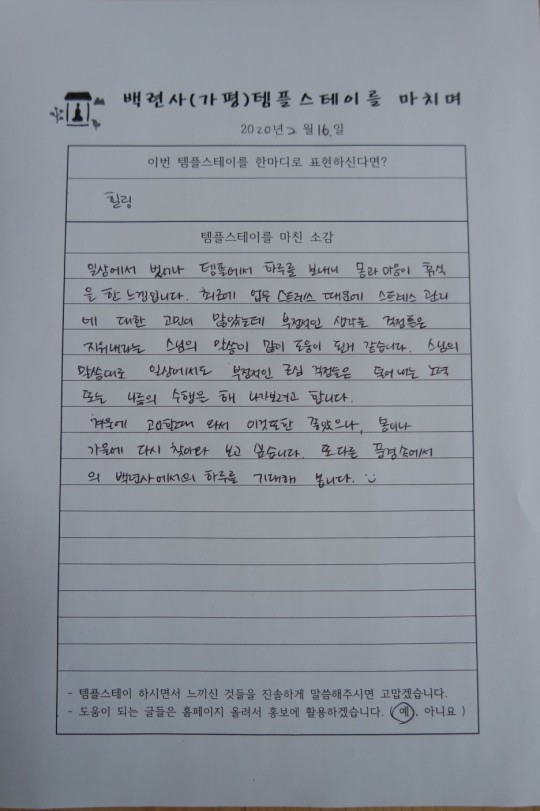 백련사(가평)템플스테이를 마치며
2020년 2월 16.일
이번 템플스테이를 한마디로 표현하신다면?
힐링
템플스테이를 마친 소감
일상에서 벗어나 템플에서 하루를 보내니 몸과 마음이 휴식
을 한 느낌입니다. 최근에 업무 스트레스 때문에 스트레스 관리
에 대한 고민이 많았는데 부정적인 생각들 걱정들은
지워내라는 스님의 말씀이 많이 도움이 된거 같습니다. 스님의
말씀대로 일상에서도 부정적인 근심 걱정들은 덜어 내는 노력
또는 나름의 수행은 해 나가보려고 합니다.
겨울에 고요할때 와서 이것또한 좋았으나, 봄이나
가을에 다시 찾아와 보고 싶습니다. 또 다른 풍경속에서
의 백련사에서의 하루를 기대해 봅니다.
- 템플스테이 하시면서 느끼신 것들을 진솔하게 말씀해주시면 고맙겠습니다.
- 도움이 되는 글들은 홈페이지 올려서 홍보에 활용하겠습니다. ( 예, 아니요 )